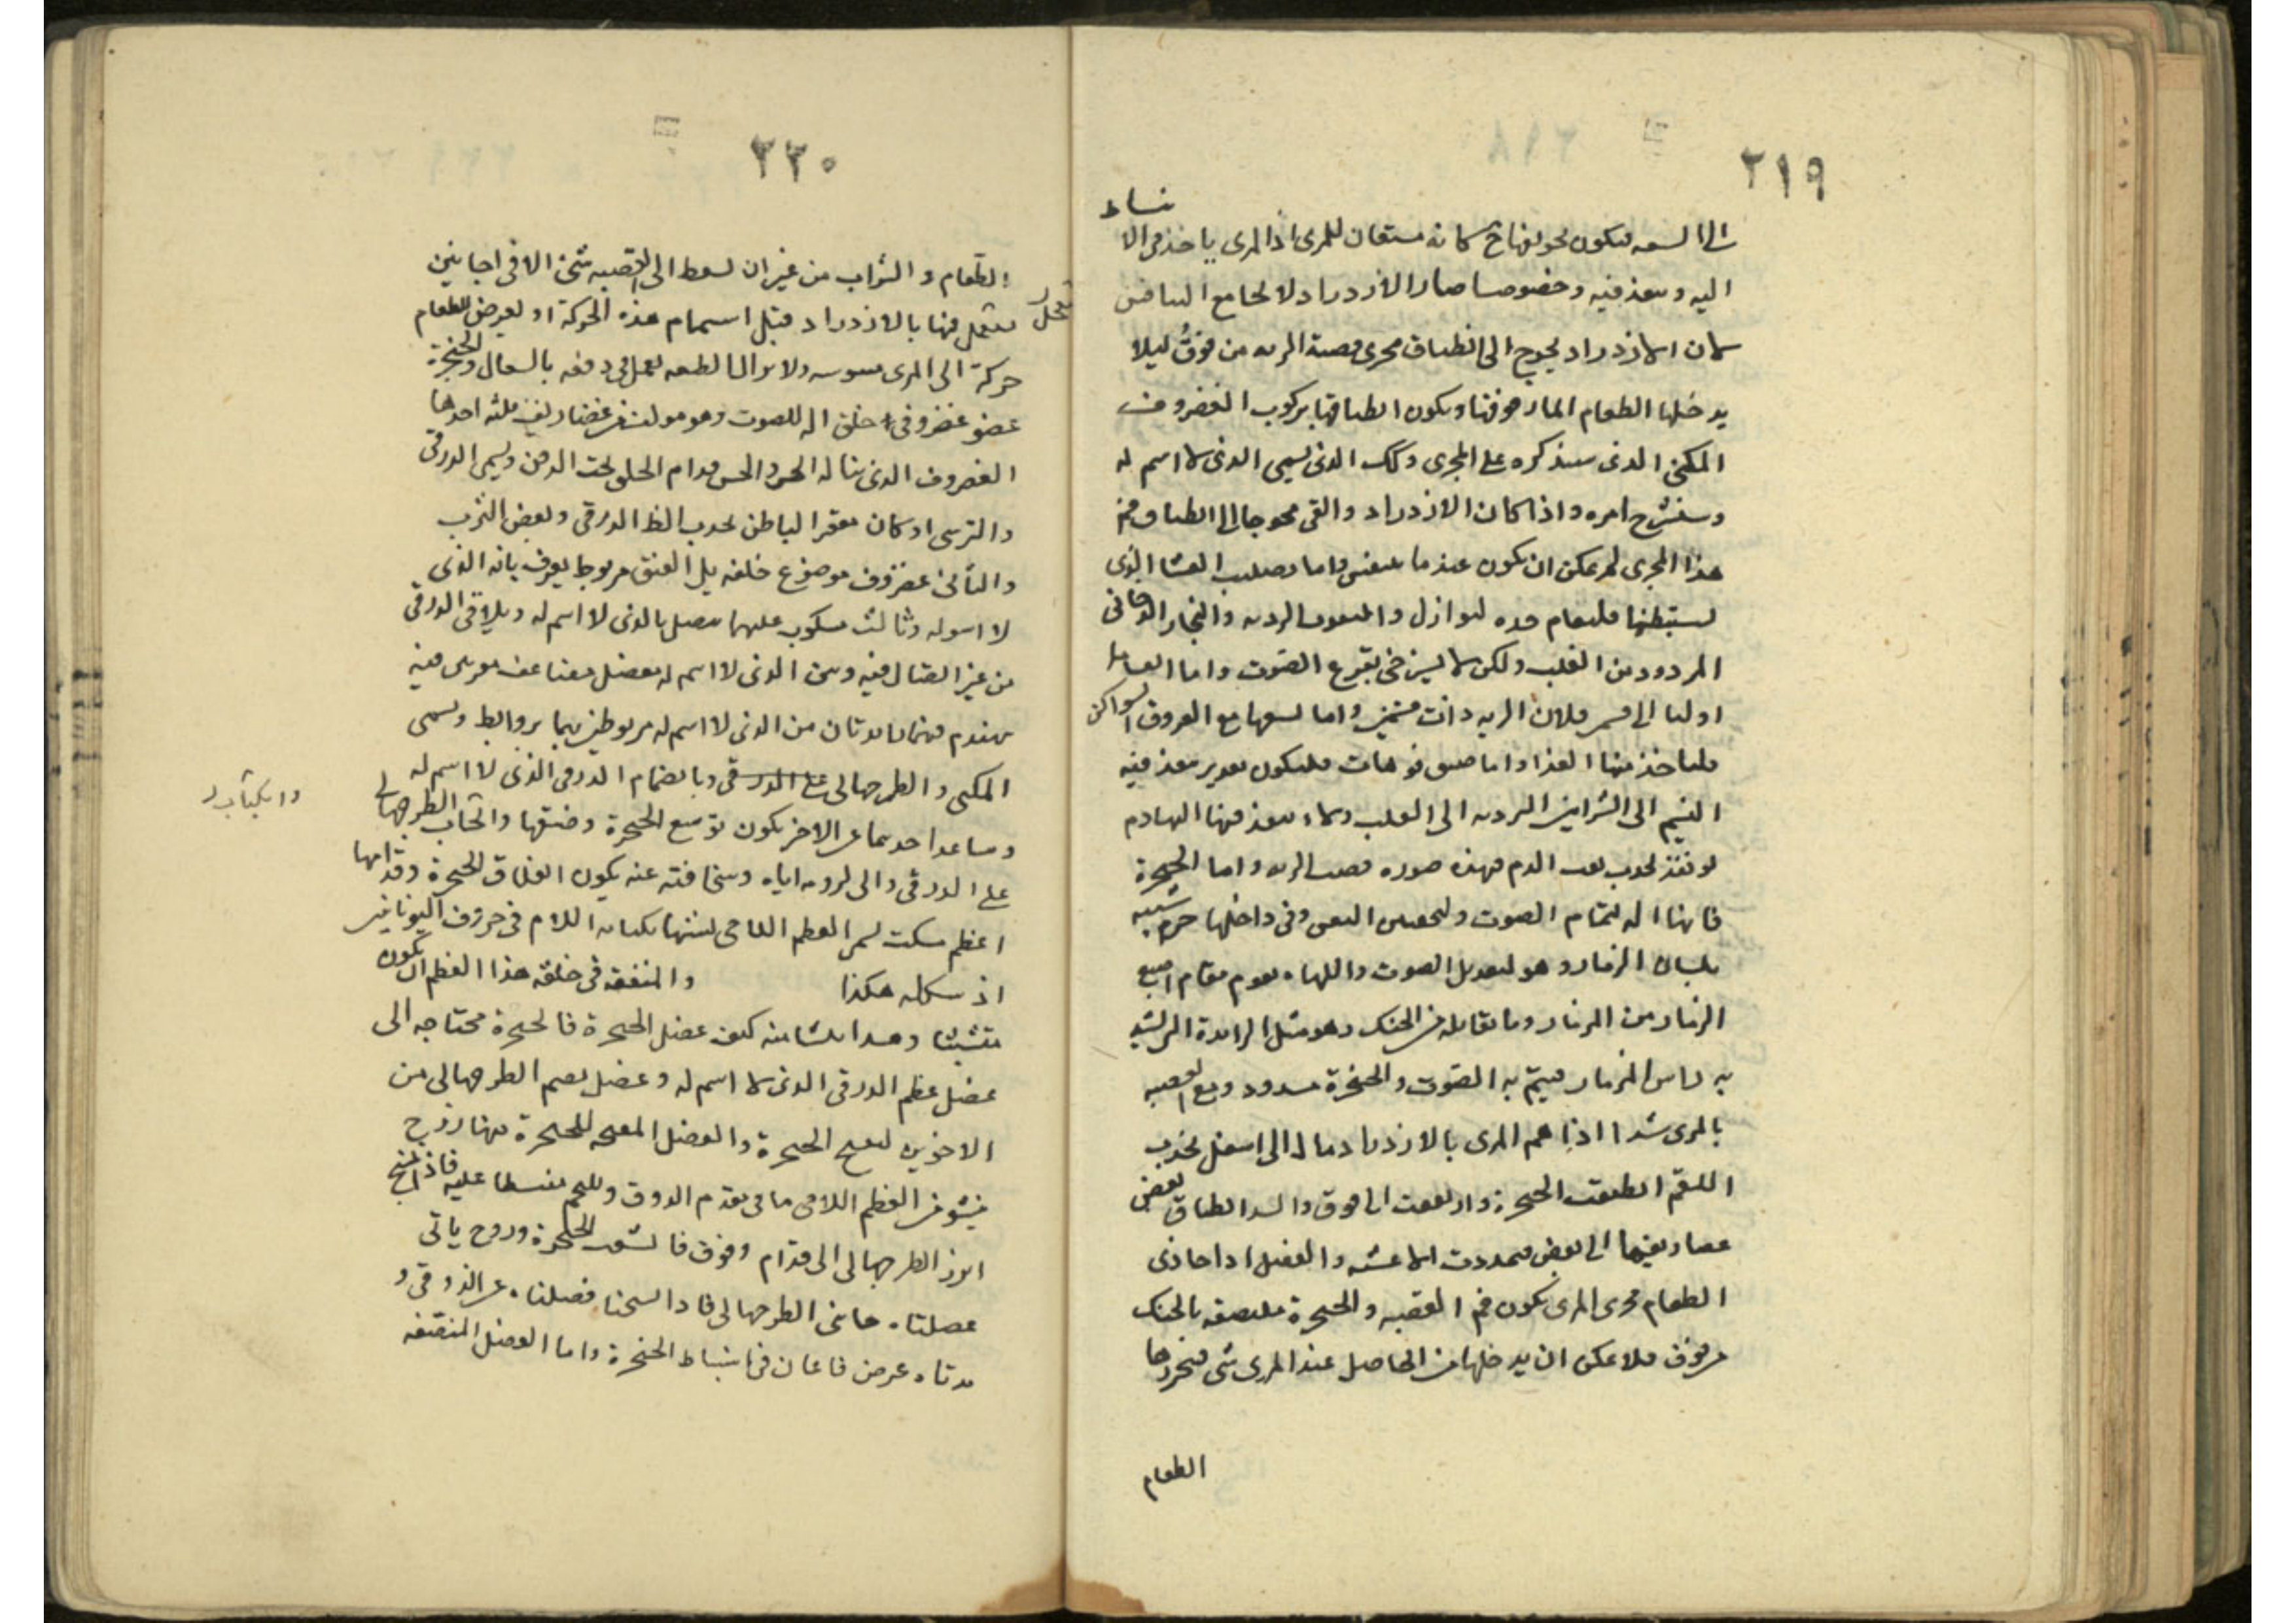 ٢١٩
الى السعه فيكون تجويفهاح كانه مستعان للمرى اذ المرى ياخذ فى الا نبساط
اليه وينفذ فيه وخصوصا صار الازدراد لا يجامع التنافس
لان الازدراد يحوج الى انطباق مجرى قصبة الريه من فوق ليلا
يدخلها الطعام المار فوقها ويكون انطباقها بركوب الغضروف
المكبى الذى سنذكره على المجرى وكك الذى يسمى الذى لا اسم له
وسنشرح امره واذا كان الازدراد والقى محوجا الى انطباق فم
هذا المجرى لم يمكن ان يكون عندما يتنفس واما تصليب الغشا الذى
يستبطنها فليقاوم حده النوازل والنفوث الرديه والبخار الدخانى
المردود من القلب ولكن لا يسترخى بقرع الصوت واما انقسامها
اولا الى قسمين فلان الريه ذات قسمين واما تشعبها مع العروق السواكن
فلياخذ منها الغذا واما ضيق فوهات فليكون بقدر ينفذ فيه
النسيم الى الشرايين المرديه الى القلب ولا ينفذ فيها اليها دم
لو نفذ لحدث نفث الدم فهذه صوره قصبه الريه واما الحنجرة
فانها اله لتمام الصوت ولتحبس النفس وفى داخلها جرم شبيه
بلسان الزمار وهو لتعديل الصوت واللهاه تقوم مقام اصبع
الزمار من المزمار وما يقابله من الحنك وهو مثل الزايدة التى تشد
به راس المزمار فيتم به الصوت والحنجرة مشدود ومع القصبه
بالمرى شدا اذا هم المرى بالازدراد ومال الى اسفل يجذب
اللقم انطبقت الحنجرة وارتفعت الى فوق والشد انطباق بعض
غضاريفها الى بعض فتمددت الاغشيه والعضل اذا حاذى
الطعام مجرى المرى يكون فم القصبه والحنجرة ملتصقه بالحنك
من فوق فلا يمكن ان يدخلها من الحاصل عند المرى شى فيجوزها
الطعام
٢٢٠
الطعام والشراب من غير ان يسقط الى القصبه شئ الا فى احايين
يستعجل فيها بالازدراد قبل استتمام هذه الحركة او يعرض للطعام
حركة الى المرى مشوشه ولا يزال الطبيعه يعمل فى دفعه بالسعال والحنجرة
عضو غضروفى خلق اله للصوت وهو مولف من غضاريف ثلثه احدها
الغضروف الذى يناله الجس والحس قدام الحلق تحت الذقن ويسمى الدرقى
والترسى اذ كان مقعر الباطن محدب الظ الدرقى وبعض الترب
والثانى غضروف موضوع خلفه يلى العنق مربوط يعرف بانه الذى
لا اسم له وثالث مكبوب عليهما يتصل بالذى لا اسم له ويلاقى الدرقى
من غير اتصال فيه وبين الذى لا اسم له مفصل مضاعف بنقرتين فيه
تهندم فيهما زايدتان من الذى لا اسم له مربوطتين بهما بروابط ويسمى
المكبى والطرجهالى على الدرقى وبانضمام الدرقى الذى لا اسم له
وتباعد احدهما عن الاخر يكون توسع الحنجرة وضيقها وانكباب الطرجهالى
وانكباب
على الدرقى والى لزومه اياه وتجافيه عنه يكون انغلاق الحنجرة وقدامها
عظم مثلث يسمى العظم اللامى تشبيها بكتابه اللام فى حروف اليونانيين
اذ شكله هكذا والمنفعه فى خلقه هذا العظم ان يكون
متشبثا وسندا ينشا منه ليف عضل الحنجرة فالحنجرة محتاجه الى
عضل يضم الدرقى الذى لا اسم له وعضل يضم الطرجهالى من
الاخرين لفتح الحنجرة والعضل المفتحه للحنجرة منها زوج
ينشو من العظم اللامى فياتى مقدم الدرقى ويلتحم منبسطا عليه فاذا تشنج
ابرز الطرجهالى الى قدام وفوق فاتسعت الحنجرة وزوج ياتى
عضلتاه حاشى الطرجهالى فاذا تشنجا فصلتاه عن الدرقى و
مدتاه عرض فاعان فى انبساط الحنجرة واما العضل المضيقه